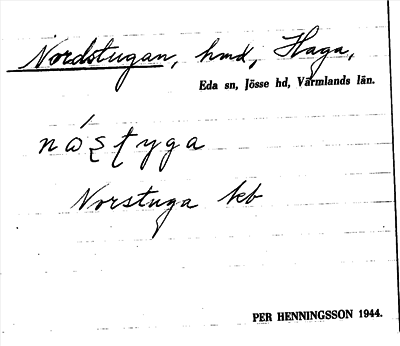 Nordstugan, hmd, Haga,
Eda sn, Jösse hd, Värmlands län.
Norstuga kb
PER HENNINGSSON 1944.